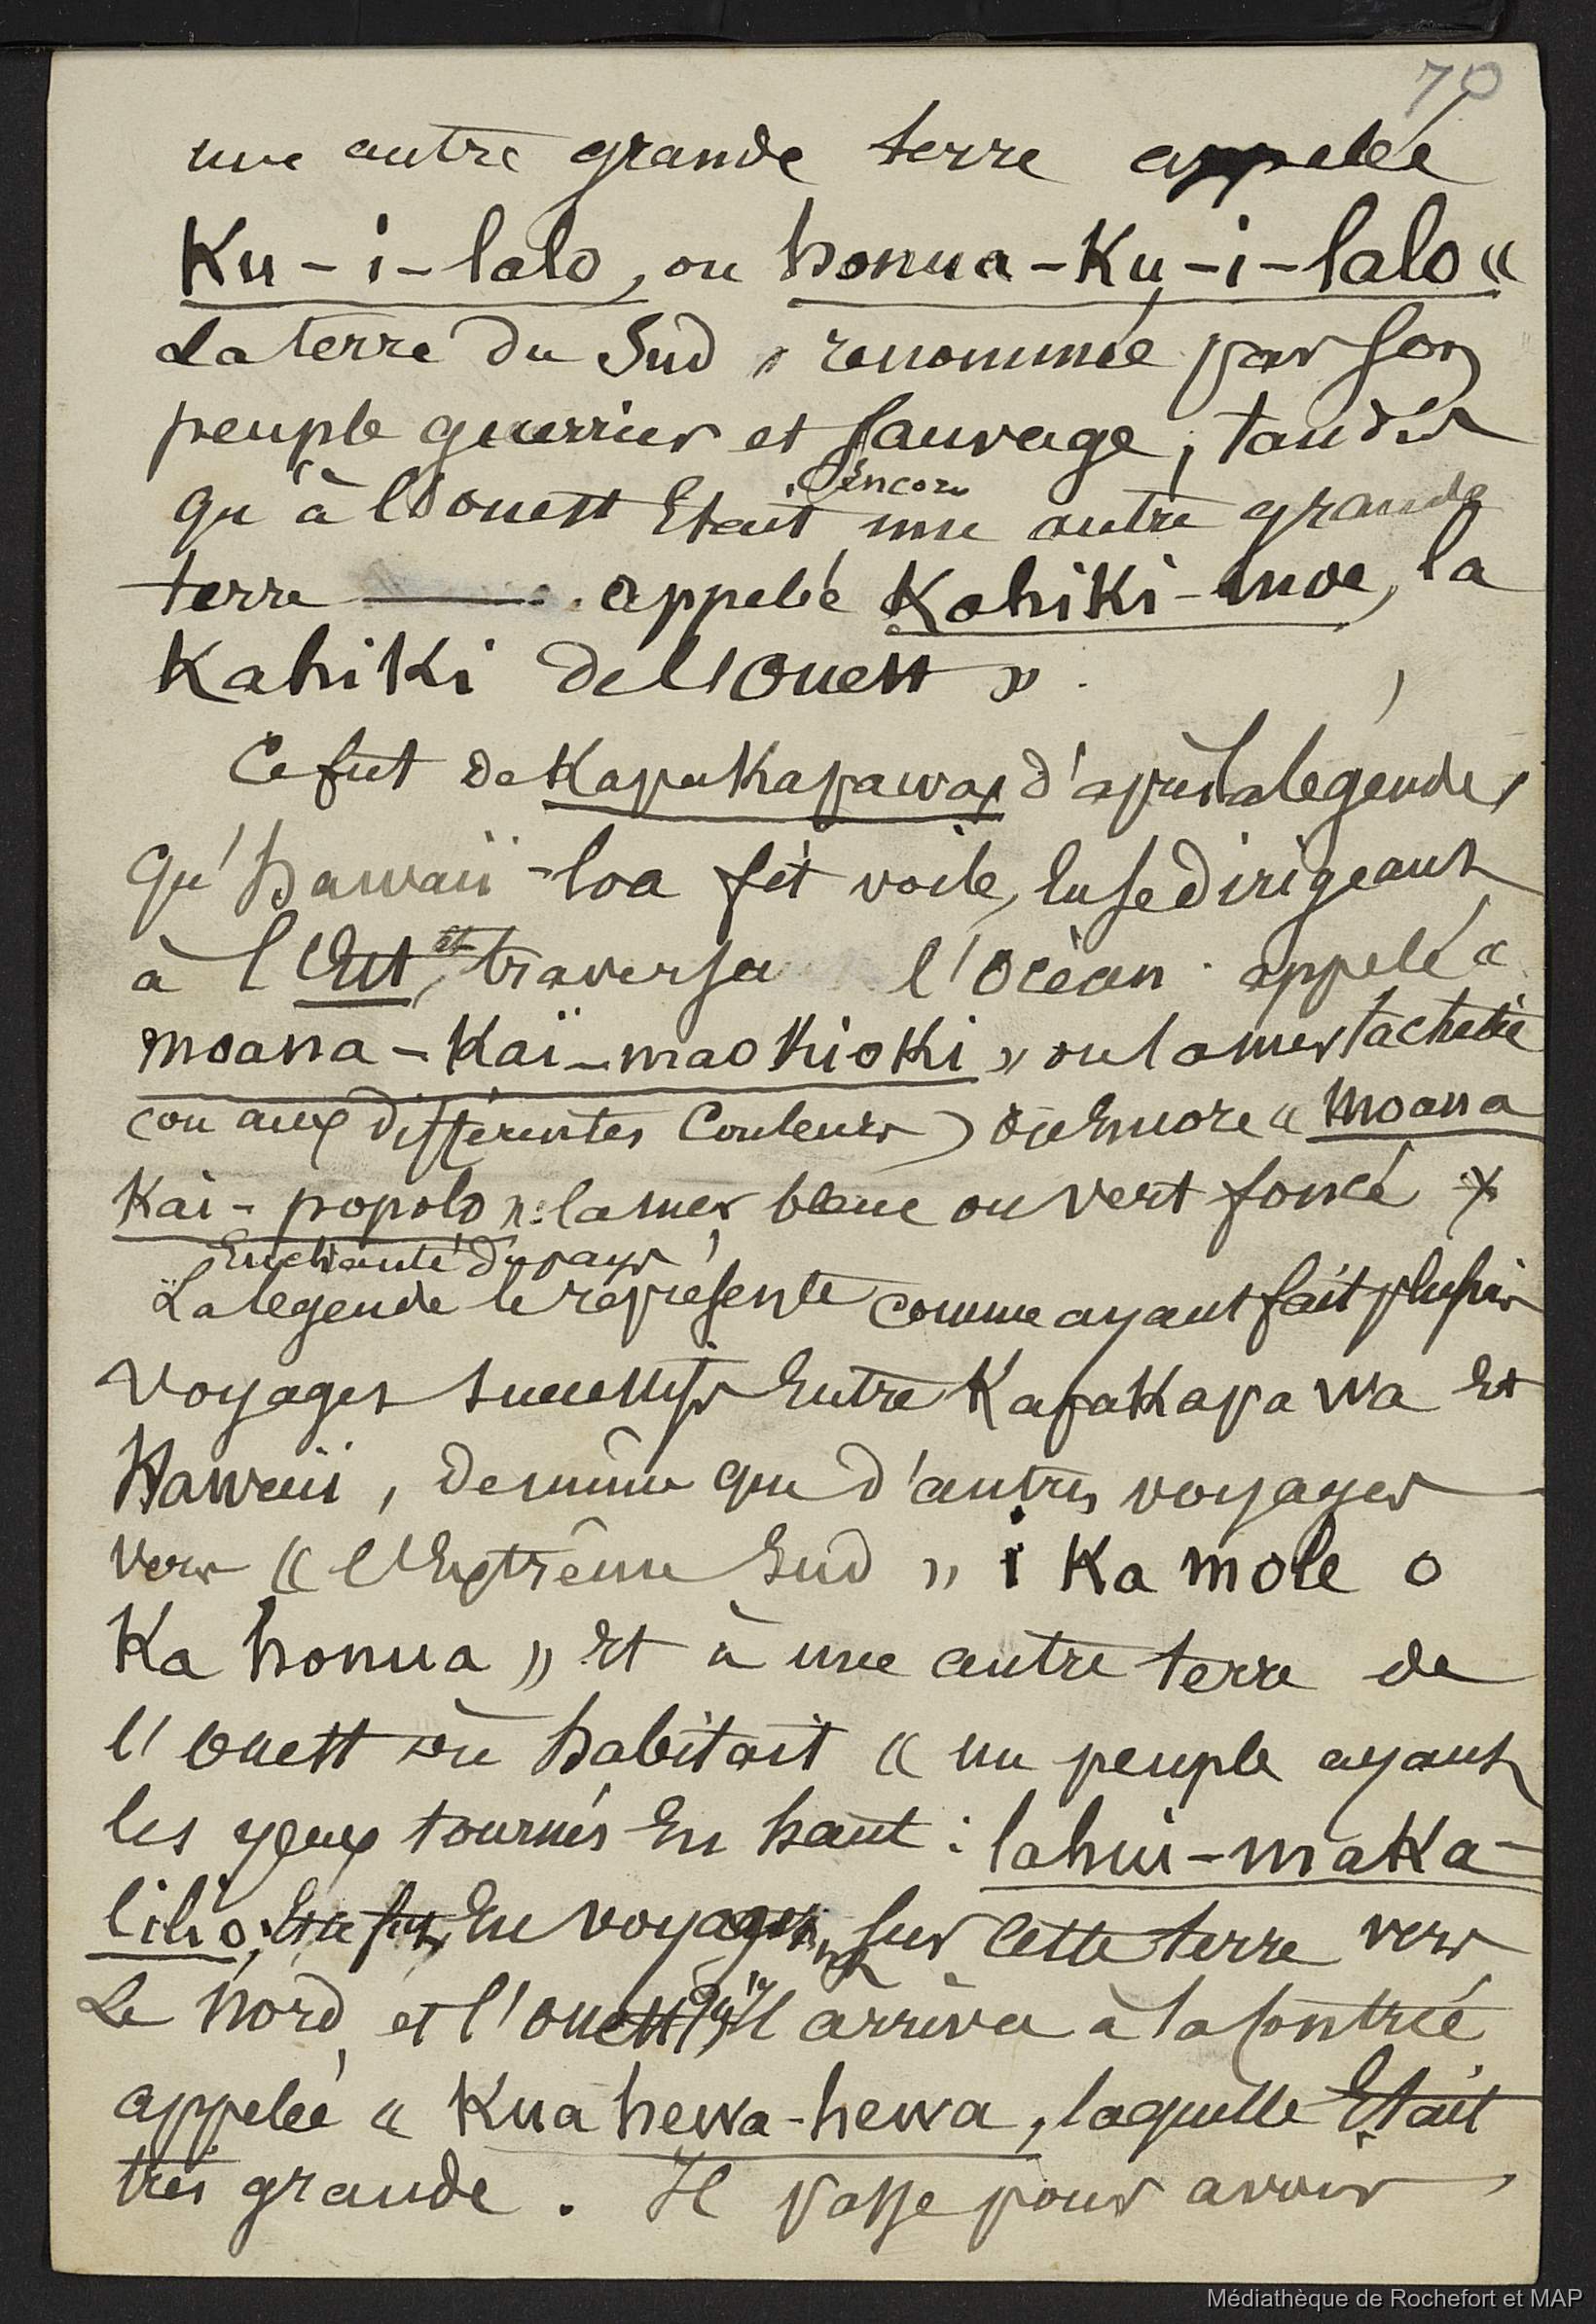 70
une autre grande terre appelée
Ku-i-lalo, ou honua-Ku-i-lalo «
La terre du Sud » renommée par son
peuple guerrier et sauvage, tandis
qu'à l'ouest Etait encore une autre grande
terre appelée Kahiki-moe, la
Kahiki de l'Ouest ».
Ce fut de Kapakapawa, d'après la légende,
qu'hawaïi-loa fit voile, en se dirigeant
à l'Est, et traversa l'Océan appelé «
moana-Kaï-maokioki » ou la mer tachetée
(ou aux différentes couleurs) ou Encore « Moana
Kai-popolo » : la mer bleue ou vert foncé x
Enchanté du pays,
La légende le représente comme ayant fait plusieurs
voyages successifs Entre Kapakapawa Et
Hawaïi, de même que d'autres voyages
vers « l'Extrême Sud » i Ka mole o
Ka honua » Et à une autre terre de
l'Ouest où habitait « un peuple ayant
les yeux tournés En haut : lahui-maKa-
lilio, En voyageant sur cette terre vers
Le Nord et l'ouest qu'il arriva à la contrée
appelée « Kuahewa-hewa, laquelle Etait
très grande. Il passe pour avoir
Médiathèque de Rochefort et MAP